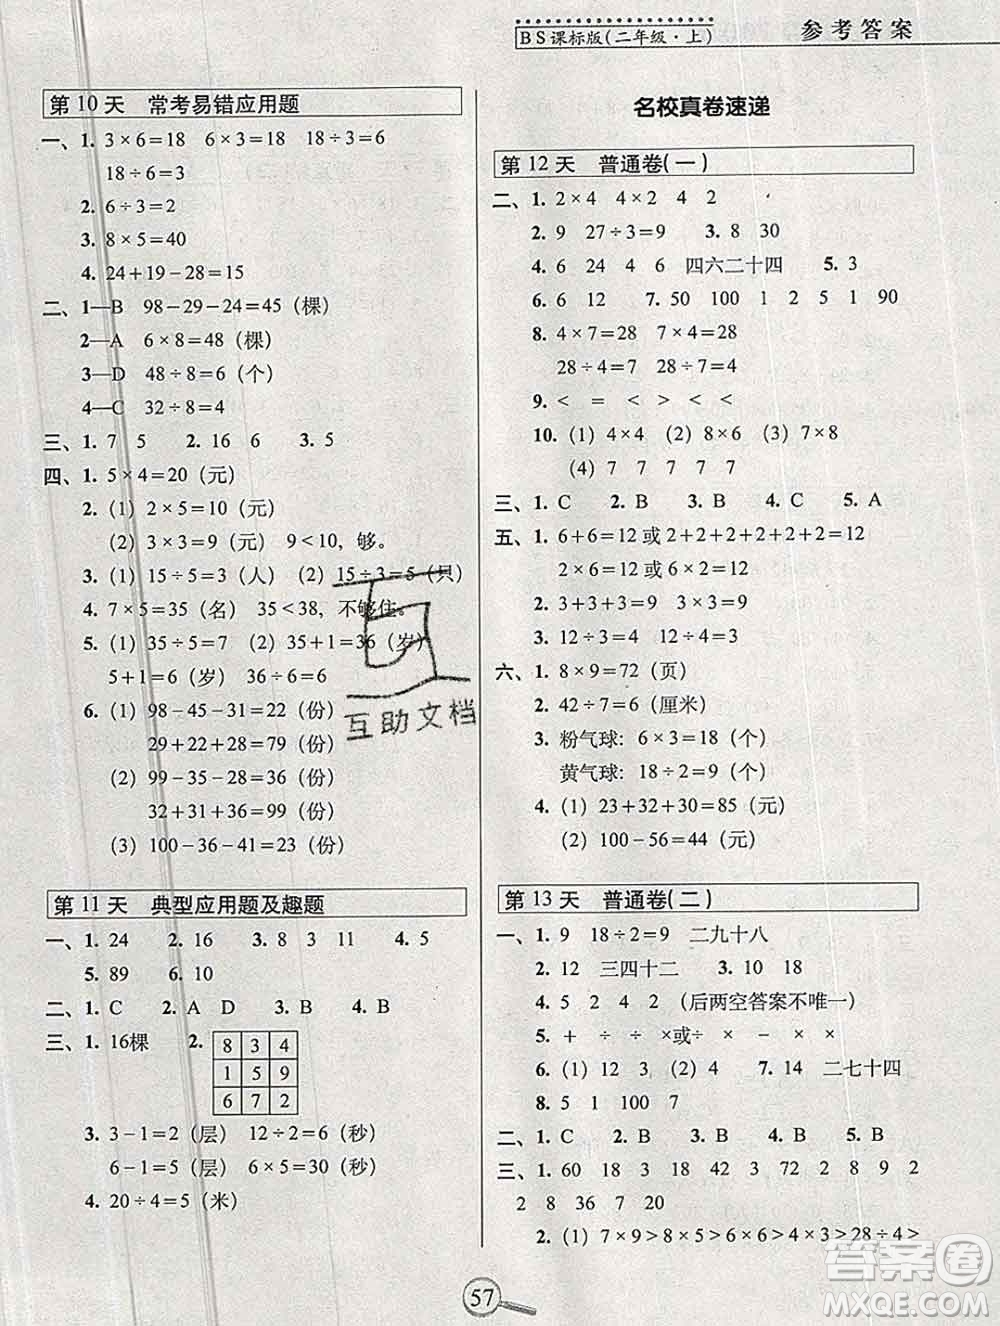 BS课标版(二年级·上) 参考答案
第10天 常考易错应用题
一、1. 3×6=18 6×3=18 18÷3=6
18÷6=3
2. 6÷3=2
3. 8×5=40
4. 24+19-28=15
二、1—B 98-29-24=45（棵）
2—A 6×8=48（棵）
3—D 48÷8=6（个）
4—C 32÷8=4
三、1. 7 5 2. 16 6 3. 5
四、1. 5×4=20（元）
2.（1）2×5=10（元）
（2）3×3=9（元） 9<10，够。
3.（1）15÷5=3（人）（2）15÷3=5（只）
4. 7×5=35（名） 35<38，不够住。
5.（1）35÷5=7 （2）35+1=36（岁）
5+1=6（岁） 36÷6=6
6.（1）98-45-31=22（份）
29+22+28=79（份）
（2）99-35-28=36（份）
32+31+36=99（份）
（3）100-36-41=23（份）
第11天 典型应用题及趣题
一、1. 24 2. 16 3. 8 3 11 4. 5
5. 89 6. 10
二、1. C 2. A D 3. B 4. B
三、1. 16棵 2.
8 3 4
1 5 9
6 7 2
3. 3-1=2（层） 12÷2=6（秒）
6-1=5（层） 6×5=30（秒）
4. 20÷4=5（米）
名校真卷速递
第12天 普通卷(一)
二、1. 2×4 4×2 4 2
2. 9 27÷3=9 3. 8 30
4. 6 24 4 6 四六二十四 5. 3
6. 6 12 7. 50 100 1 2 5 1 90
8. 4×7=28 7×4=28
28÷4=7 28÷7=4
9. < = < > < <
10.（1）4×4 （2）8×6 （3）7×8
（4）7 7 7 7 7
三、1. C 2. B 3. B 4. C 5. A
五、1. 6+6=12 或 2+2+2+2+2+2=12
2×6=12 或 6×2=12
2. 3+3+3=9 3×3=9
3. 12÷3=4 12÷4=3
六、1. 8×9=72（页）
2. 42÷7=6（厘米）
3. 粉气球：6×3=18（个）
黄气球：18÷2=9（个）
4.（1）23+32+30=85（元）
（2）100-56=44（元）
第13天 普通卷(二)
一、1. 9 18÷2=9 二九十八
2. 12 三四十二 3. 10 18
4. 5 2 4 2 （后两空答案不唯一）
5. + ÷ ÷ ×或÷ × - ×
6.（1）6 （2）4 7. 14 二七十四
8. 5 1 100 7
二、1. C 2. B 3. B 4. C 5. A
三、1. 60 18 3 18 42 3 8 9 2
2 8 36 7 20
2.（1）7×9>8×7>5×6>6×6>4×3>28÷4>
57
互助文档
答案圈
MXQE.COM